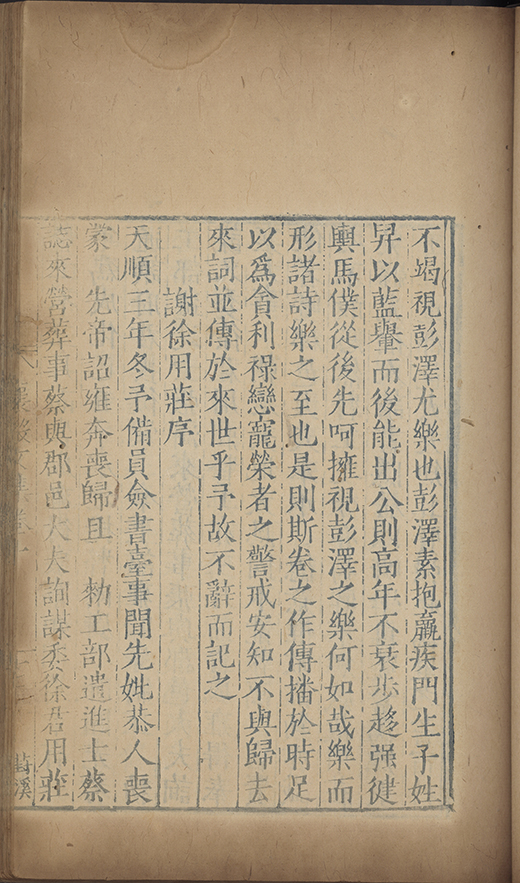 不竭視彭澤尤樂也彭澤素抱羸疾門生子姓
昇以藍轝而後能出公則高年不衰步趍强徤
輿馬僕從後先呵擁視彭澤之樂何如哉樂而
形諸詩樂之至也是則斯卷之作傳播於時足
以爲貪利祿戀寵榮者之警戒安知不與歸去
來詞並傳於來世乎予故不辭而記之
謝徐用莊序
天順三年冬予備員僉書臺事聞先妣恭人喪
蒙 先帝詔雍奔喪歸且 勑工部遣進士蔡
誌來營葬事蔡與郡邑大夫詢謀委徐君用莊